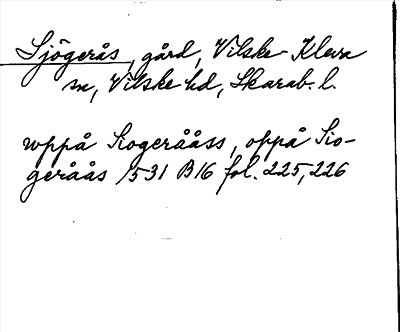 Sjögerås, gård, Vilske-Kleva
sn, Vilske hd, Skarab. l.
wppå Siogerååss, oppå Sio-
geråås 1531 B16 fol. 225, 226